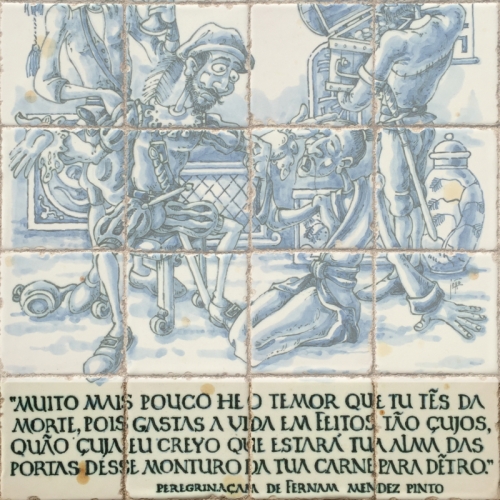 "MUITO MAIS POUCO HE O TEMOR QUE TU TẼS DA
MORTE, POIS GASTAS A VIDA EM FEITOS TÃO ÇUJOS,
QUÃO ÇUJA EU CREYO QUE ESTARÁ TUA ALMA DAS
PORTAS DESSE MONTURO DA TUA CARNE PARA DẼTRO."
PEREGRINAÇAM DE FERNAM MENDEZ PINTO